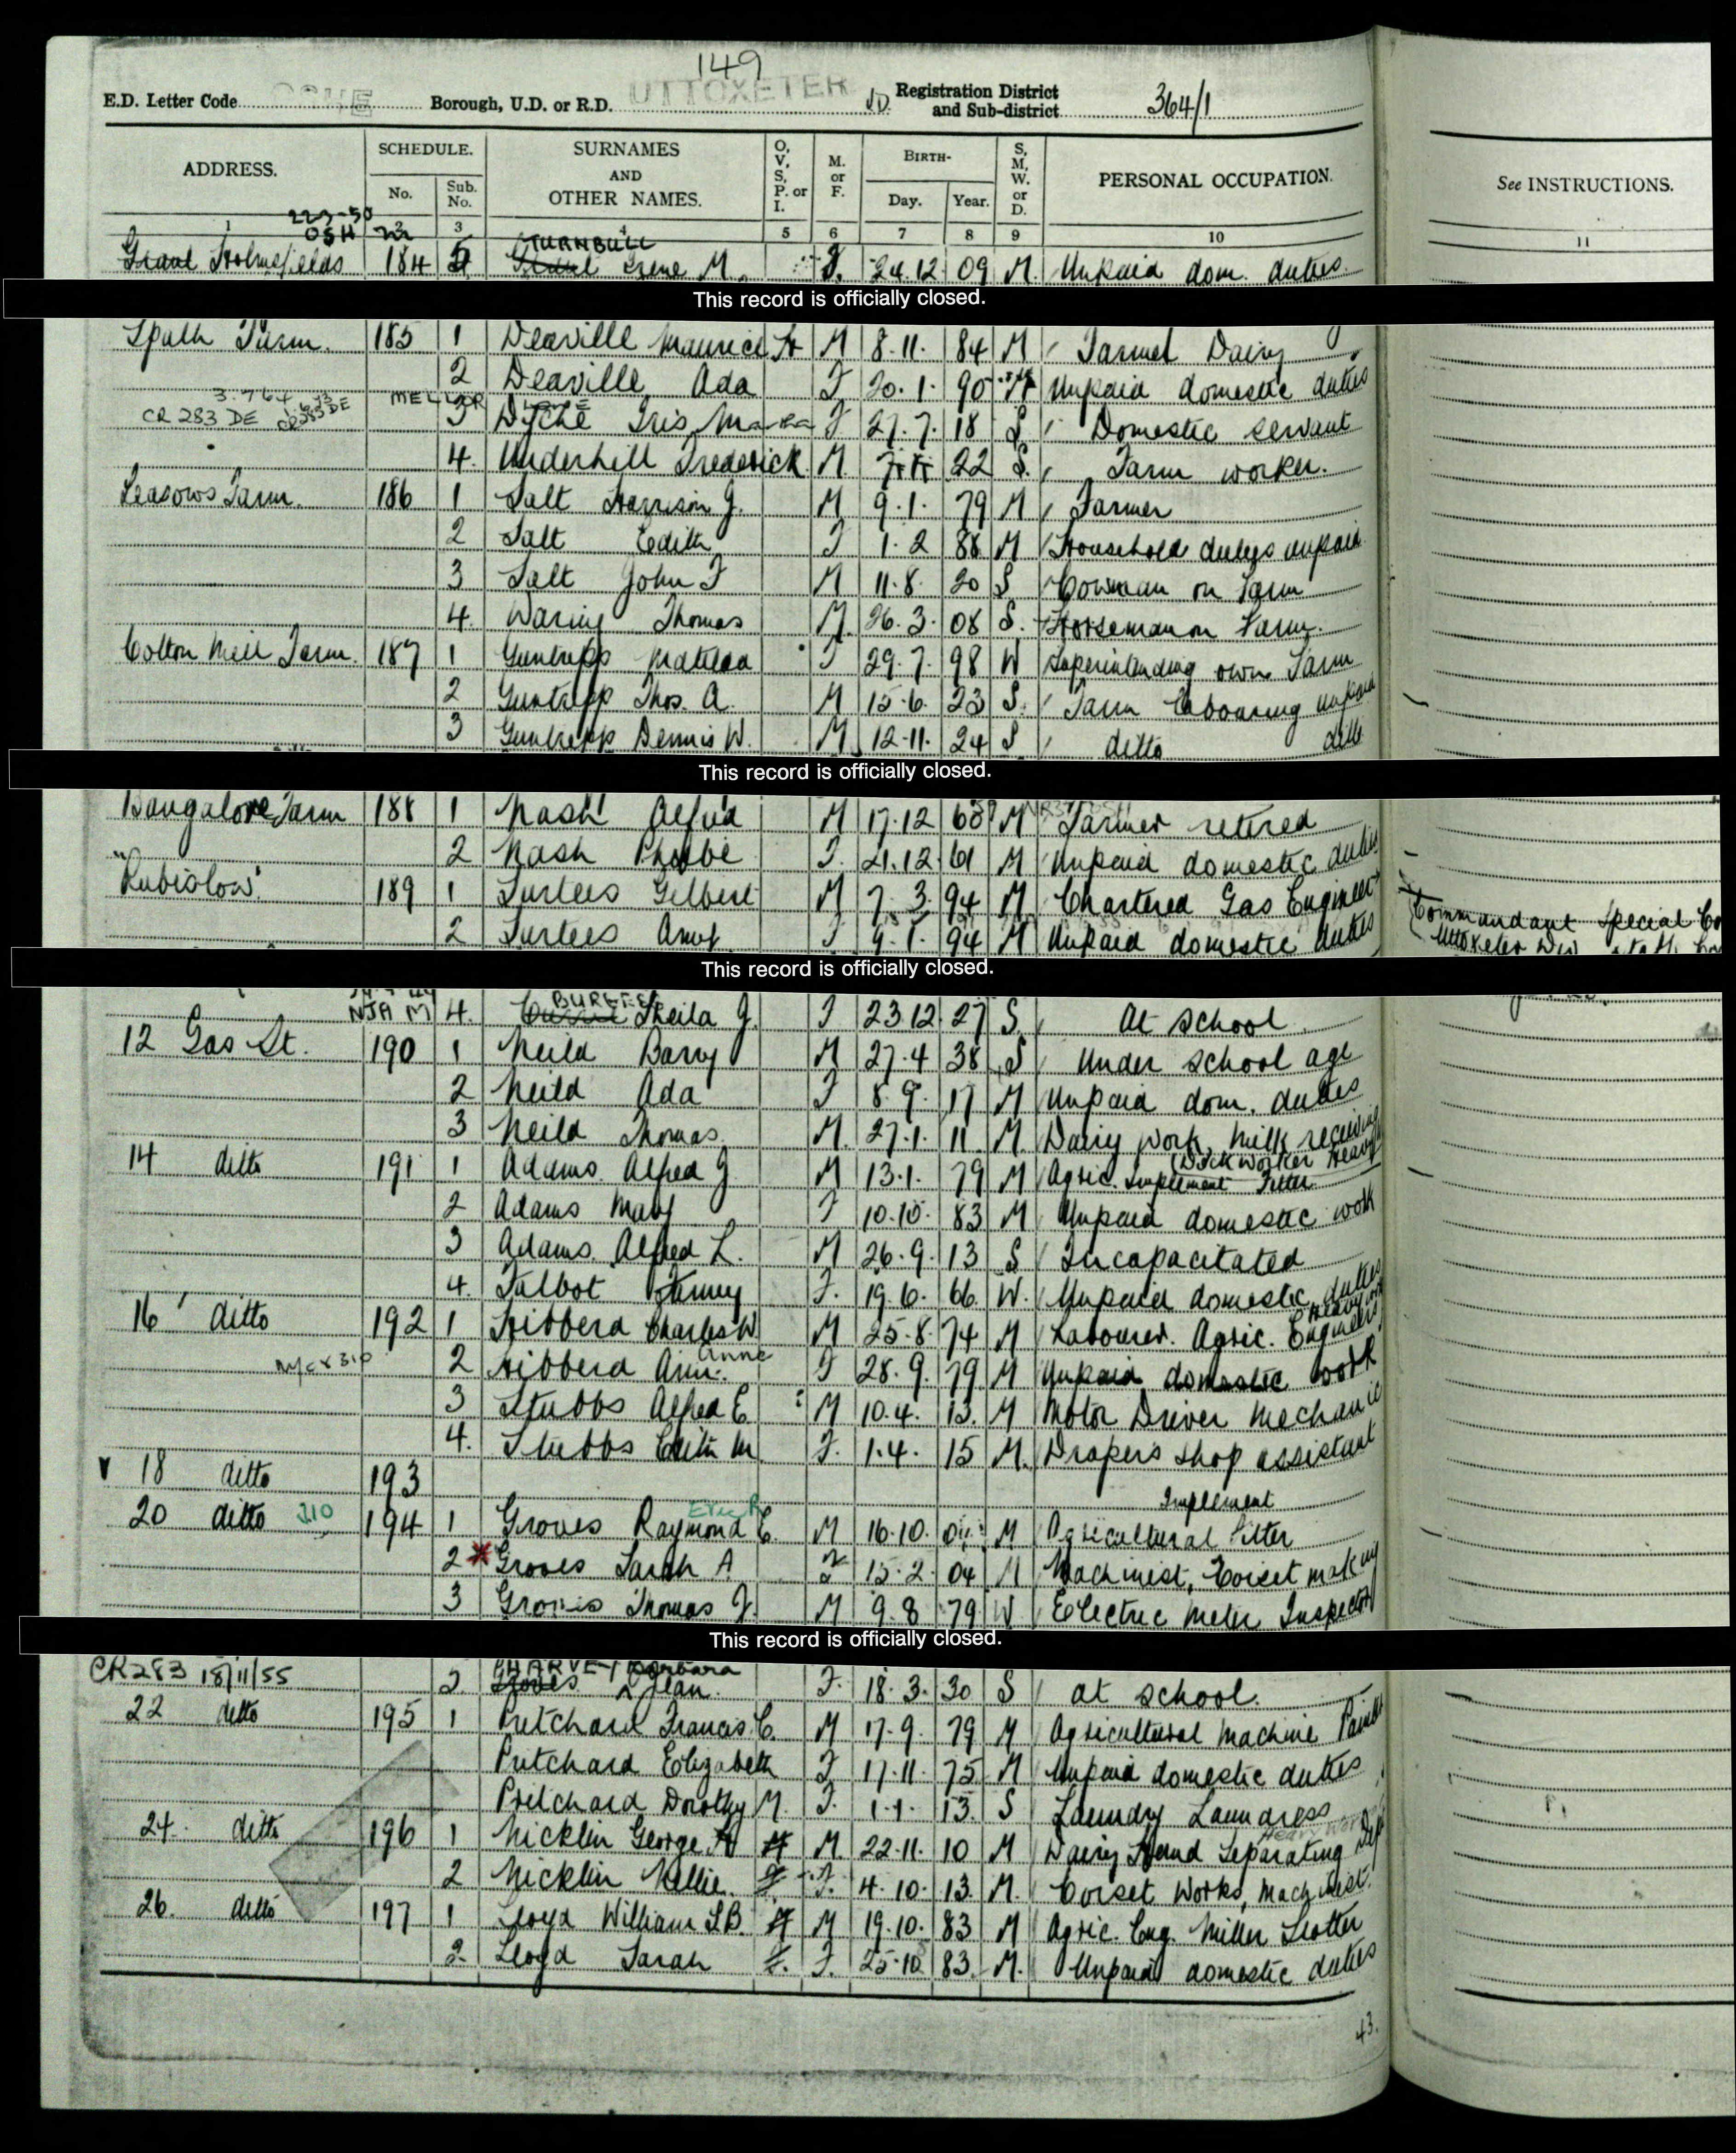 149
E.D. Letter Code Borough, U.D. or R.D. UTTOXETER UD Registration District and Sub-district 364/1
ADDRESS. SCHEDULE. No. Sub. No. SURNAMES AND OTHER NAMES. O, V, S, P. or I. M. or F. BIRTH- Day. Year. S, M, W. or D. PERSONAL OCCUPATION. See INSTRUCTIONS.
1 2 3 4 5 6 7 8 9 10 11
TURNBULL
Holmefields 184 5 Irene M. F. 24.12 09 M. Unpaid dom. duties.
This record is officially closed.
Spath Farm. 185 1 Deaville Maurice H M 8.11. 84 M Farmer Dairy
2 Deaville Ada F 20.1. 90 M Unpaid domestic duties
CR 283 DE MELLOR 3 Dyche Iris F 27.7. 18 S Domestic servant
4. Underhill Frederick M. 22 S. Farm worker.
Leasows Farm. 186 1 Salt Harrison G. M 9.1. 79 M Farmer
2 Salt Edith F 1.2 88 M Household dutys unpaid
3 Salt John F M 11.8. 20 S Cowman on Farm
4. Waring Thomas M. 26.3. 08 S. Horseman on Farm.
Colton Mill Farm. 187 1 Guntripp Matilda F 29.7. 98 W Superintending own Farm
2 Guntripp Thos. A. M 15.6. 23 S. Farm labouring unpaid
3 Guntripp Dennis W. M. 12.11. 24 S ditto ditto
This record is officially closed.
Bangalore Farm 188 1 Nash Alfred M 17.12 68 M Farmer retired
2 Nash Phoebe F. 21.12 61 M Unpaid domestic duties
"Rubislow" 189 1 Surtees Gilbert M 7.3. 94 M Chartered Gas Engineer Commandant Special
2 Surtees Amy F 9.1. 94 M Unpaid domestic duties Uttoxeter
This record is officially closed.
4. Sheila J. F 23.12 27 S. At school
12 Gas St. 190 1 Neild Barry M 27.4 38 S Under school age
2 Neild Ada F 8.9. 17 M Unpaid dom. duties
3 Neild Thomas M. 27.1. 11 M. Dairy work, Milk receiving
14 ditto 191 1 Adams Alfred G M 13.1. 79 M Agric. Implement Fitter
2 Adams Mary F 10.10. 83 M Unpaid domestic work
3 Adams. Alfred L. M 26.9. 13 S Incapacitated
4. Talbot Fanny F. 19.6. 66 W. Unpaid domestic duties
16 ditto 192 1 Hibberd Charles W M 25.8. 74 M Labourer. Agric. Engineers
2 Hibberd Ann. Anne F 28.9. 79 M Unpaid domestic work
3 Stubbs Alfred E. M 10.4. 13. M Motor Driver Mechanic
4. Stubbs Edith M F. 1.4. 15 M. Drapers shop assistant
18 ditto 193
Implement
20 ditto 194 1 Groves Raymond C. M 16.10. M Agricultural Fitter
2 Groves Sarah A F 15.2. 04 M Machinist, Corset making
3 Groves Thomas J. M 9.8 79 W Electric Meter Inspector
This record is officially closed.
CR283 18/11/55 HARVEY Barbara
2. Groves Jean. F. 18.3. 30 S at school.
22 ditto 195 1 Pritchard Francis C. M 17.9. 79 M Agricultural Machine
Pritchard Elizabeth F 17.11. 75 M Unpaid domestic duties
Pritchard Dorothy M. F. 1.1. 13. S Laundry Laundress
24. ditto 196 1 Nicklin George H M. 22.11. 10 M Dairy Hand Separating
2 Nicklin Nellie. F. 4.10. 13. M. Corset Works, Machinist.
26. ditto 197 1 Lloyd William S.B. M 19.10. 83 M Agric. Eng. Miller Slotter
2. Lloyd Sarah F. 25.10 83. M. Unpaid domestic duties
43.